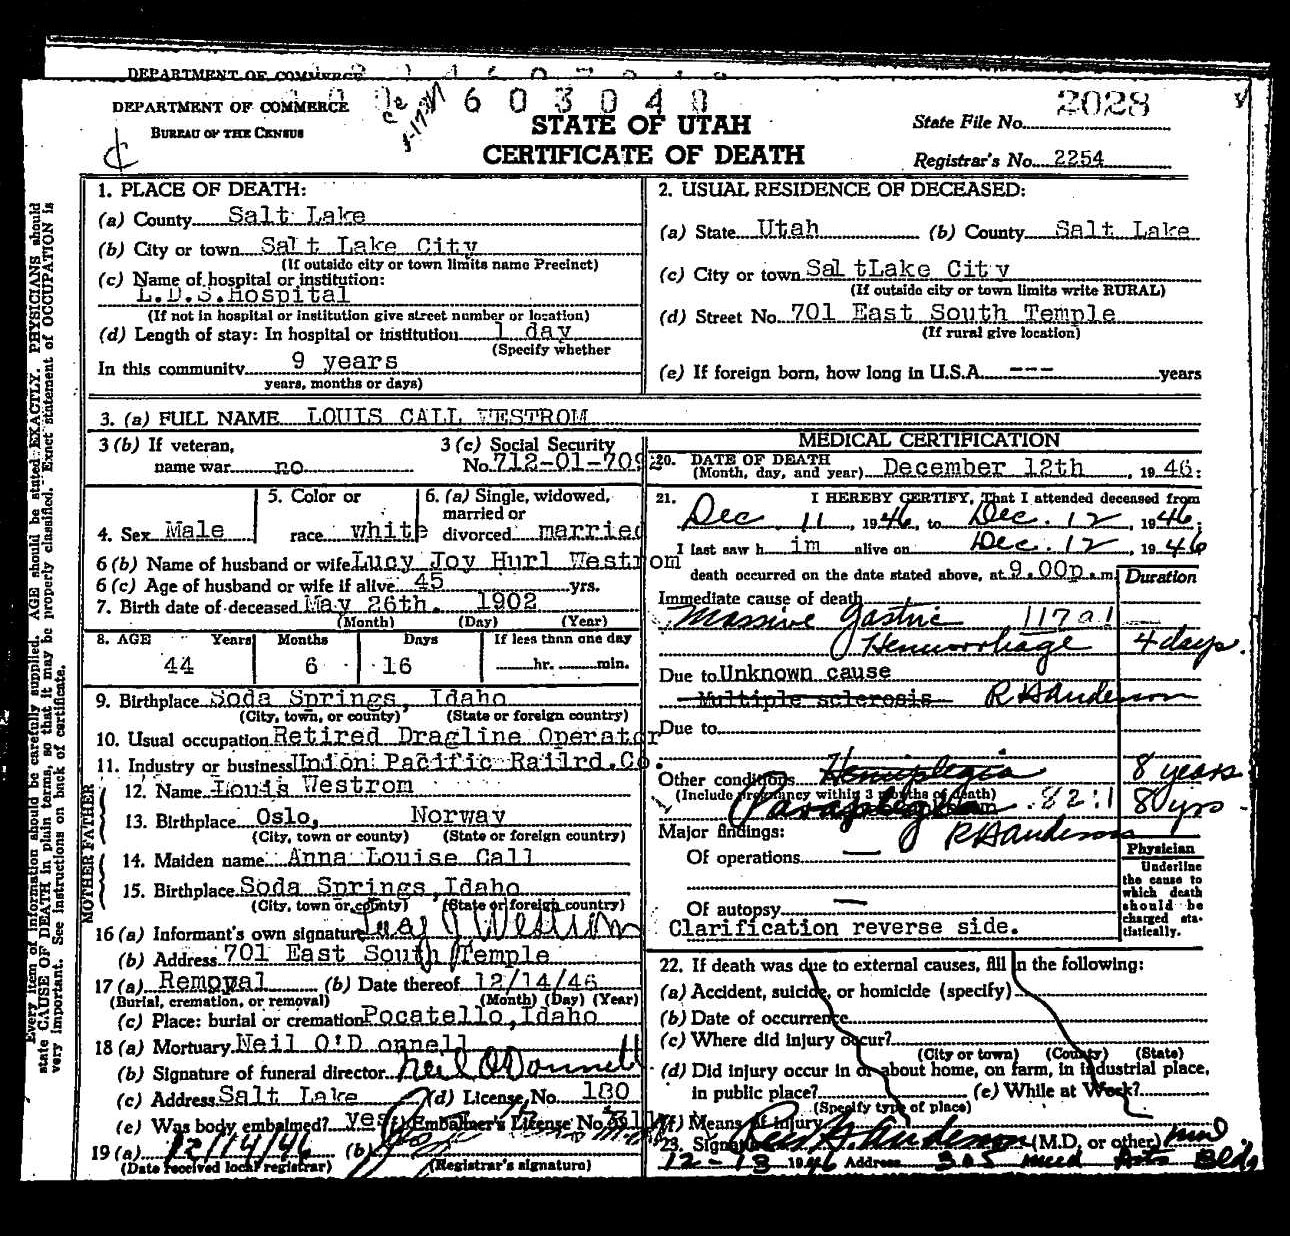 DEPARTMENT OF COMMERCE
DEPARTMENT OF COMMERCE
BUREAU OF THE CENSUS
603040
STATE OF UTAH
CERTIFICATE OF DEATH
2028
State File No.
Registrar's No. 2254
Every item of information should be carefully supplied. AGE should be stated EXACTLY. PHYSICIANS should
state CAUSE OF DEATH in plain terms, so that it may be properly classified. Exact statement of OCCUPATION is
very important. See instructions on back of certificate.
1. PLACE OF DEATH:
(a) County Salt Lake
(b) City or town Salt Lake City
(If outside city or town limits name Precinct)
(c) Name of hospital or institution:
L.D.S.Hospital
(If not in hospital or institution give street number or location)
(d) Length of stay: In hospital or institution 1 day
(Specify whether
In this community 9 years
years, months or days)
2. USUAL RESIDENCE OF DECEASED:
(a) State Utah (b) County Salt Lake
(c) City or town Sal tLake City
(If outside city or town limits write RURAL)
(d) Street No. 701 East South Temple
(If rural give location)
(e) If foreign born, how long in U.S.A. --- years
3. (a) FULL NAME LOUIS CALL WESTROM
3 (b) If veteran,
name war no
3 (c) Social Security
No. 712-01-709
4. Sex Male
5. Color or
race white
6. (a) Single, widowed,
married or
divorced married
6 (b) Name of husband or wife Lucy Joy Hurl Westrom
6 (c) Age of husband or wife if alive 45 yrs.
7. Birth date of deceased May 26th. 1902
(Month) (Day) (Year)
8. AGE Years Months Days If less than one day
44 6 16 hr. min.
9. Birthplace Soda Springs, Idaho
(City, town, or county) (State or foreign country)
10. Usual occupation Retired Dragline Operator
11. Industry or business Union Pacific Railrd.Co.
FATHER
12. Name Louis Westrom
13. Birthplace Oslo, Norway
(City, town or county) (State or foreign country)
MOTHER
14. Maiden name Anna Louise Call
15. Birthplace Soda Springs, Idaho
(City, town or county) (State or foreign country)
16 (a) Informant's own signature Lucy J Westrom
(b) Address 701 East South Temple
17 (a) Removal (b) Date thereof 12/14/46
(Burial, cremation, or removal) (Month) (Day) (Year)
(c) Place: burial or cremation Pocatello, Idaho
18 (a) Mortuary Neil O'D onnell
(b) Signature of funeral director Neil O'Donnell
(c) Address Salt Lake (d) License No. 180
(e) Was body embalmed? yes (f) Embalmer's License No.
19 (a) 12/14/46 (b)
(Date received local registrar) (Registrar's signature)
MEDICAL CERTIFICATION
20. DATE OF DEATH
(Month, day, and year) December 12th , 19 46:
21. I HEREBY CERTIFY, That I attended deceased from
Dec. 11 , 1946, to Dec. 12 , 1946.
I last saw h im alive on Dec. 12 , 1946
death occurred on the date stated above, at 9.00p.m. Duration
Immediate cause of death
Massive gastric 117a1
Hemorrhage 4 days.
Due to Unknown cause
Multiple sclerosis R H Anderson
Due to
Other conditions Hemiplegia 8 years
(Include pregnancy within 3 months of death)
Paraplegia .82:1 8 yrs.
Major findings: R H Anderson
Of operations —
Of autopsy —
Clarification reverse side.
Physician
Underline
the cause to
which death
should be
charged sta-
tistically.
22. If death was due to external causes, fill in the following:
(a) Accident, suicide, or homicide (specify)
(b) Date of occurrence
(c) Where did injury occur?
(City or town) (County) (State)
(d) Did injury occur in or about home, on farm, in industrial place,
in public place? (e) While at Work?
(Specify type of place)
(f) Means of injury
23. Signature Rees H. Anderson (M.D. or other) md
12-13 1946 Address 305 Med Arts Bldg